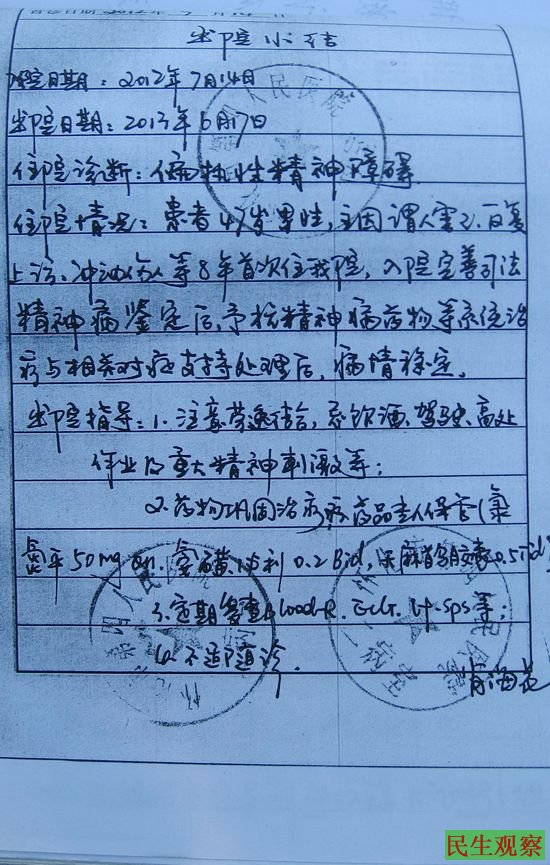 出院小结
入院日期：2012年7月14日
出院日期：2013年6月17日
住院诊断：偏执性精神障碍
住院情况：患者47岁男性，主因谓人害己、反复
上访、冲动伤人等8年首次住我院，入院完善司法
精神病鉴定后，予抗精神病药物等系统治
疗与相关对症支持处理后，病情稳定。
出院指导：1.注意劳逸结合，忌饮酒、驾驶、高处
作业及重大精神刺激等；
2.药物巩固治疗，药品专人保管（氯
氮平50mg qn. 氨磺必利0.2 Bid, 0.5 tid
3.定期复查Blood-R. ECG. Lf sps等；
4.不适随诊
第四人民医院
民生观察